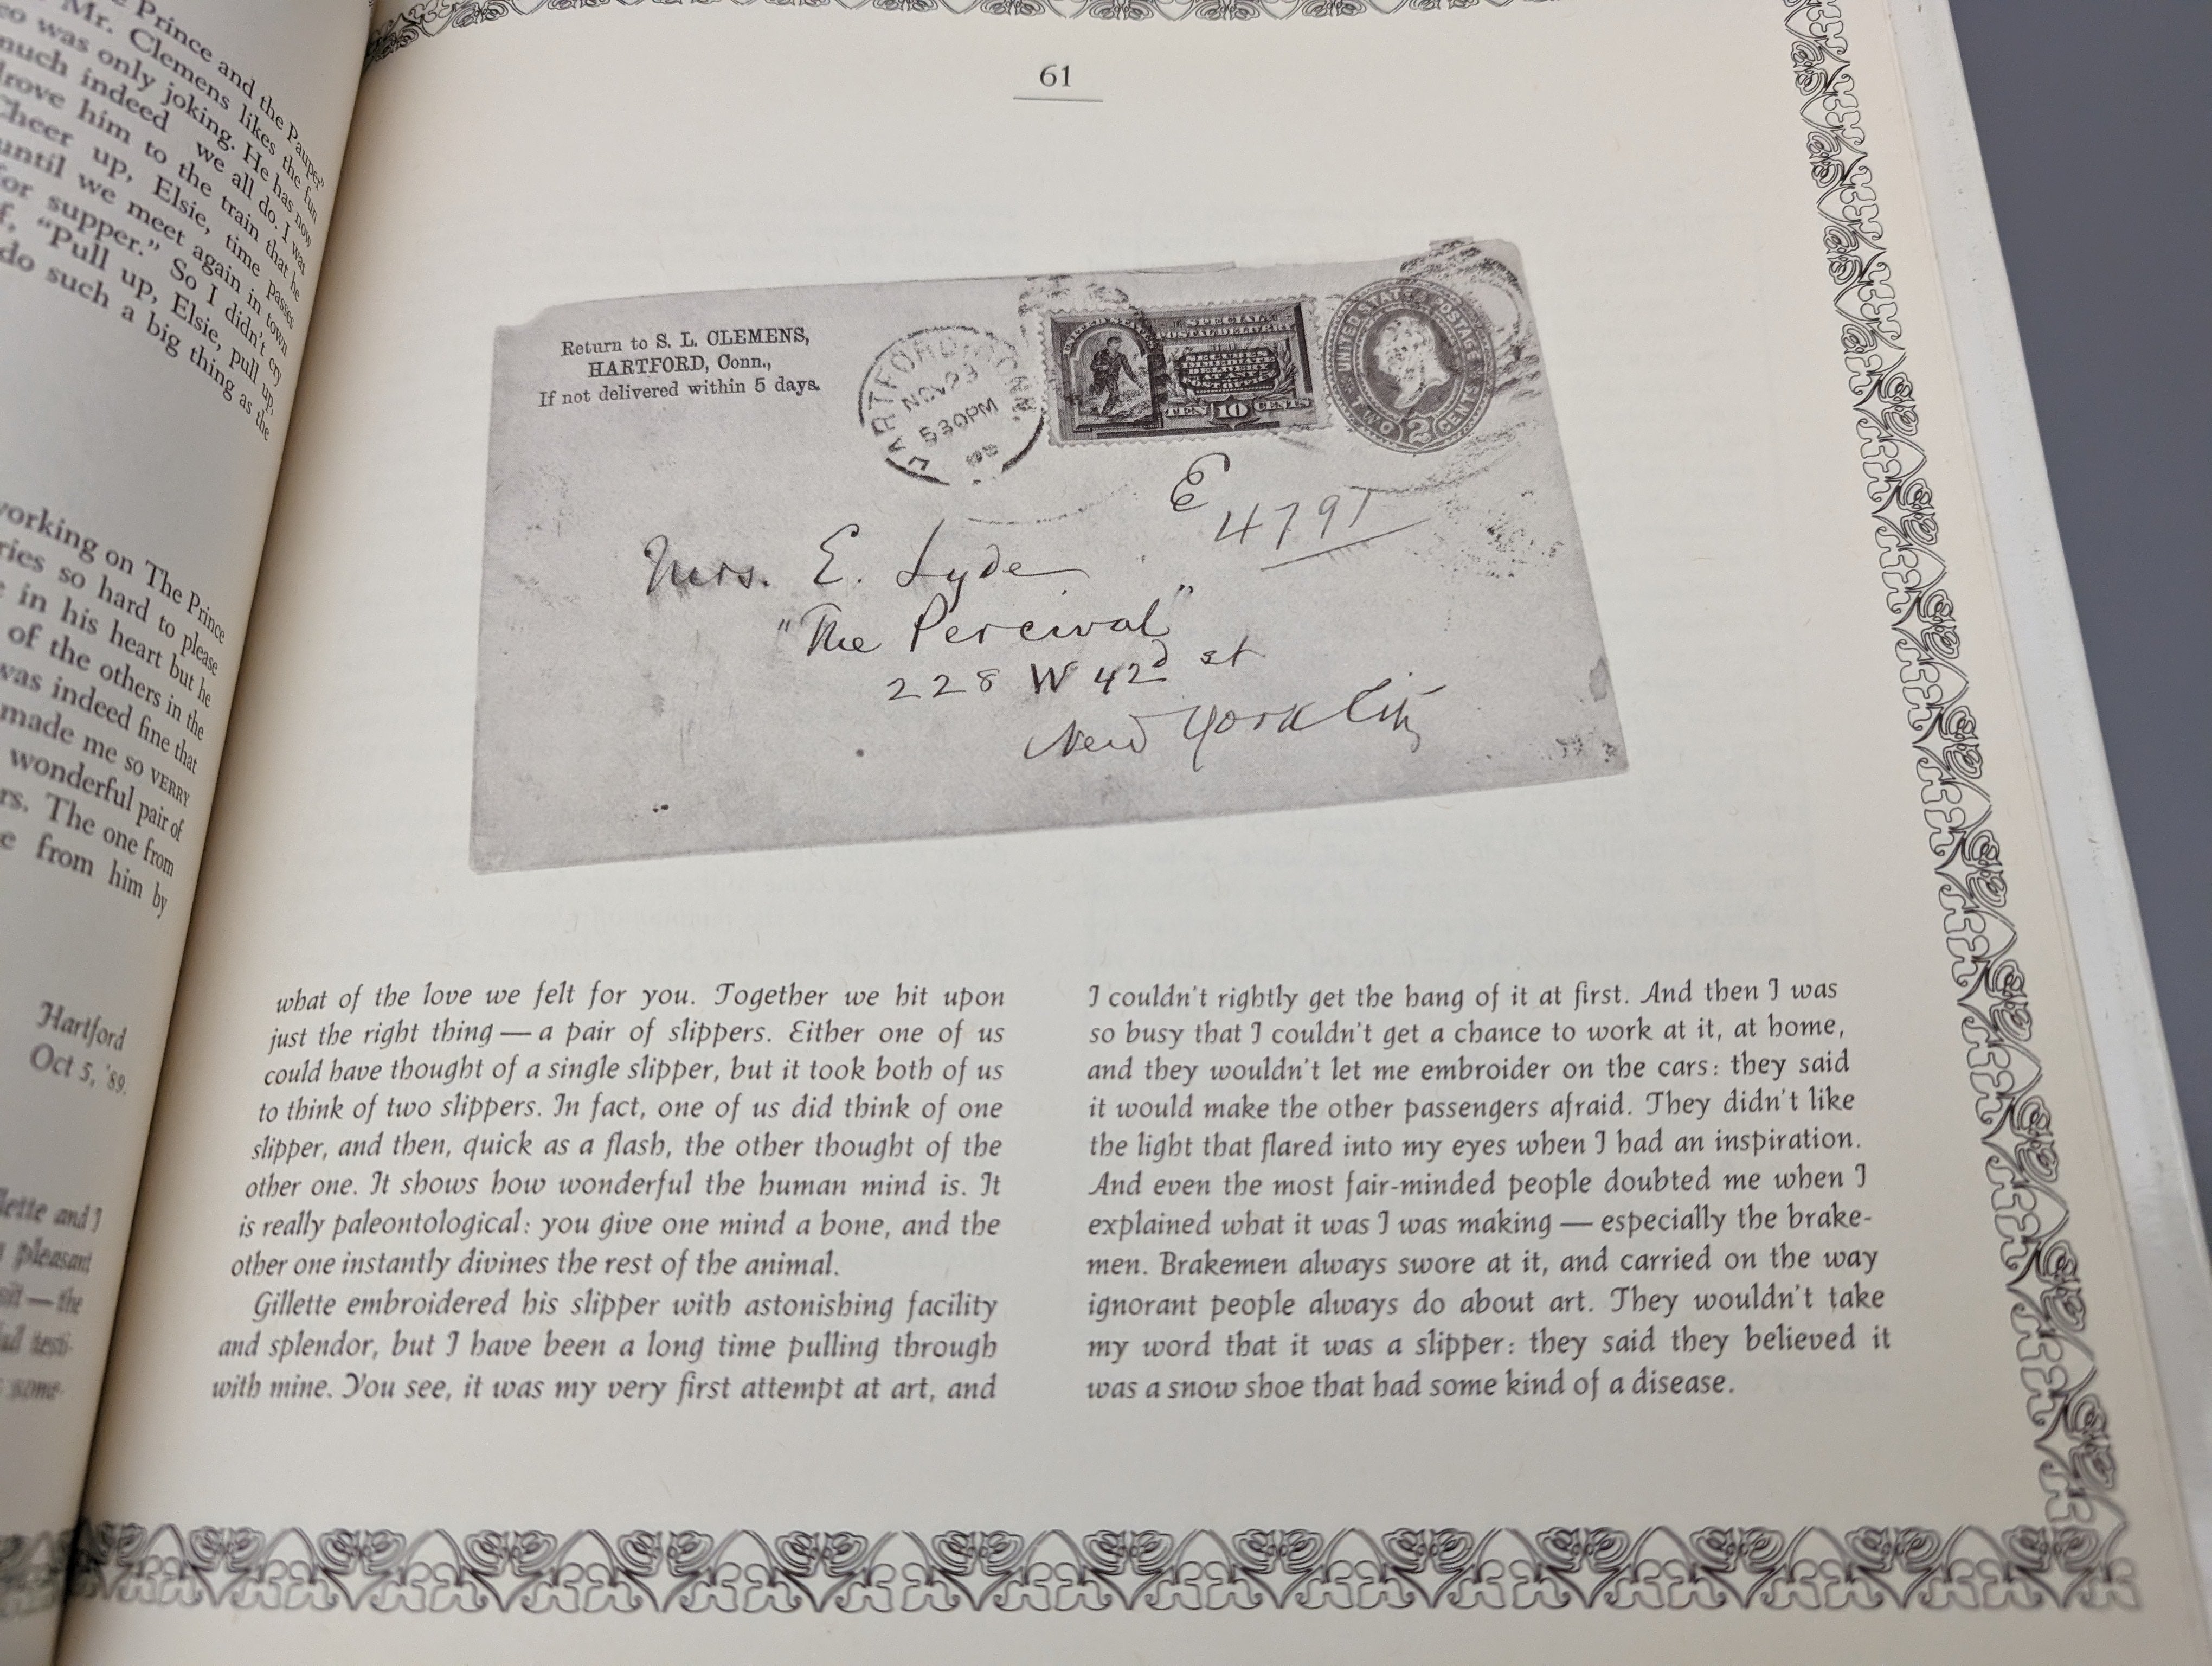 Prince and the Pauper
Mr. Clemens likes the fun
was only joking. He has now
much indeed we all do. I was
drove him to the train that he
Cheer up, Elsie, time passes
until we meet again in town
for supper." So I didn't cry
"Pull up, Elsie, pull up,
do such a big thing as the
working on The Prince
so hard to please
in his heart but he
of the others in the
was indeed fine that
made me so VERRY
wonderful pair of
The one from
from him by
Hartford
Oct 5, '89.
and I
pleasant
— the
61
Return to S. L. CLEMENS,
HARTFORD, Conn.,
If not delivered within 5 days.
HARTFORD CONN.
NOV 23
530PM
UNITED STATES POSTAGE
TWO 2 CENTS
SPECIAL
POSTAL DELIVERY
TEN 10 CENTS
E
4791
Mrs. E. Lyde
"The Percival"
228 W 42d st
New York City
what of the love we felt for you. Together we hit upon
just the right thing — a pair of slippers. Either one of us
could have thought of a single slipper, but it took both of us
to think of two slippers. In fact, one of us did think of one
slipper, and then, quick as a flash, the other thought of the
other one. It shows how wonderful the human mind is. It
is really paleontological: you give one mind a bone, and the
other one instantly divines the rest of the animal.
Gillette embroidered his slipper with astonishing facility
and splendor, but I have been a long time pulling through
with mine. You see, it was my very first attempt at art, and
I couldn't rightly get the hang of it at first. And then I was
so busy that I couldn't get a chance to work at it, at home,
and they wouldn't let me embroider on the cars: they said
it would make the other passengers afraid. They didn't like
the light that flared into my eyes when I had an inspiration.
And even the most fair-minded people doubted me when I
explained what it was I was making — especially the brake-
men. Brakemen always swore at it, and carried on the way
ignorant people always do about art. They wouldn't take
my word that it was a slipper: they said they believed it
was a snow shoe that had some kind of a disease.